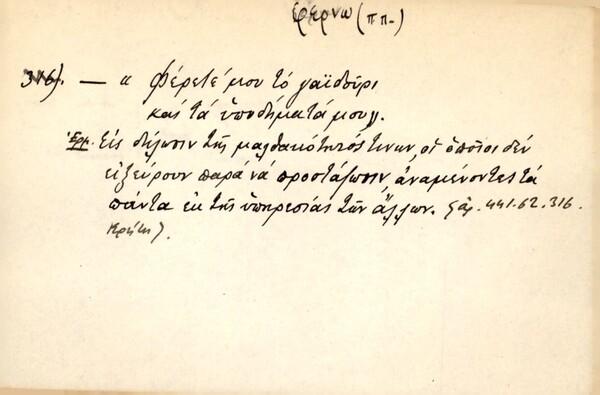 φέρνω (ππ.)
316). — « Φέρετέ μου τό γαϊδοῦρι
καί τά ὑποδήματά μου».
Ἑρμ. Εἰς δήλωσιν τῆς μαλθακότητός τινων, οἱ ὁποῖοι δέν
εἰξεύρουν παρά νά προστάξωσιν, ἀναμένοντες τά
πάντα ἐκ τῆς ὑπηρεσίας τῶν ἄλλων. ἀρ. 441. 62. 316.
Κρήτη).